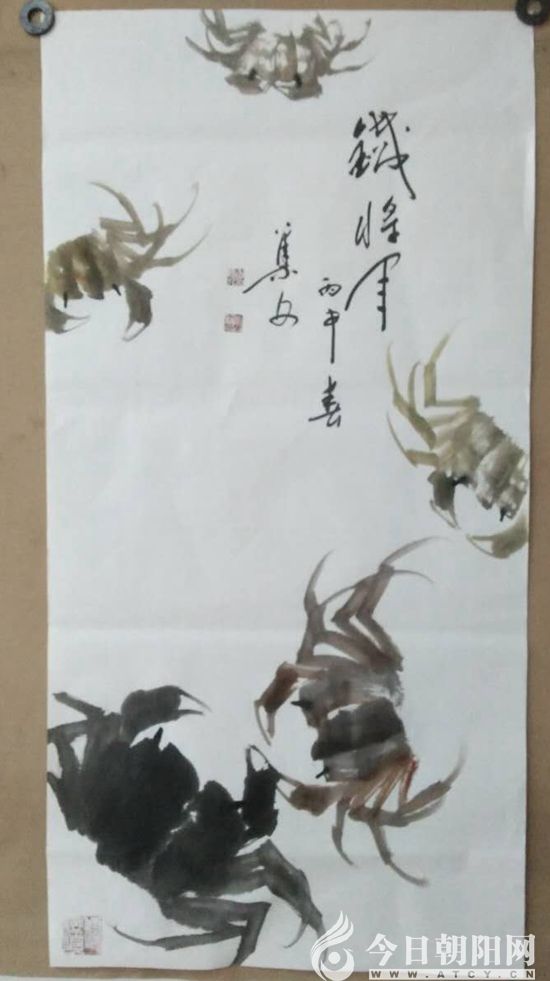 鐵將軍
丙午春
集文
今日朝阳网
WWW.ATCY.CN